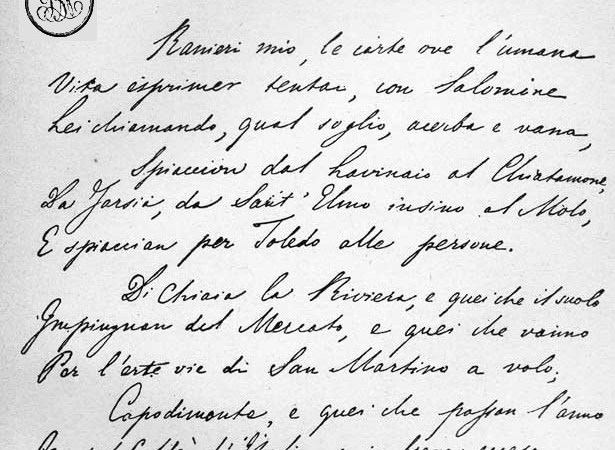 Ranieri mio, le carte ove l'umana
Vita esprimer tentai, con Salomone
Lei chiamando, qual soglio, acerba e vana,
Spiaccion dal Lavinaio al Chiatamone,
Da Tarsia, da Sant' Elmo insino al Molo,
E spiaccion per Toledo alle persone.
Di Chiaia la Riviera, e quei che il suolo
Impinguan del Mercato, e quei che vanno
Per l'erte vie di San Martino a volo;
Capodimonte, e quei che passan l'anno